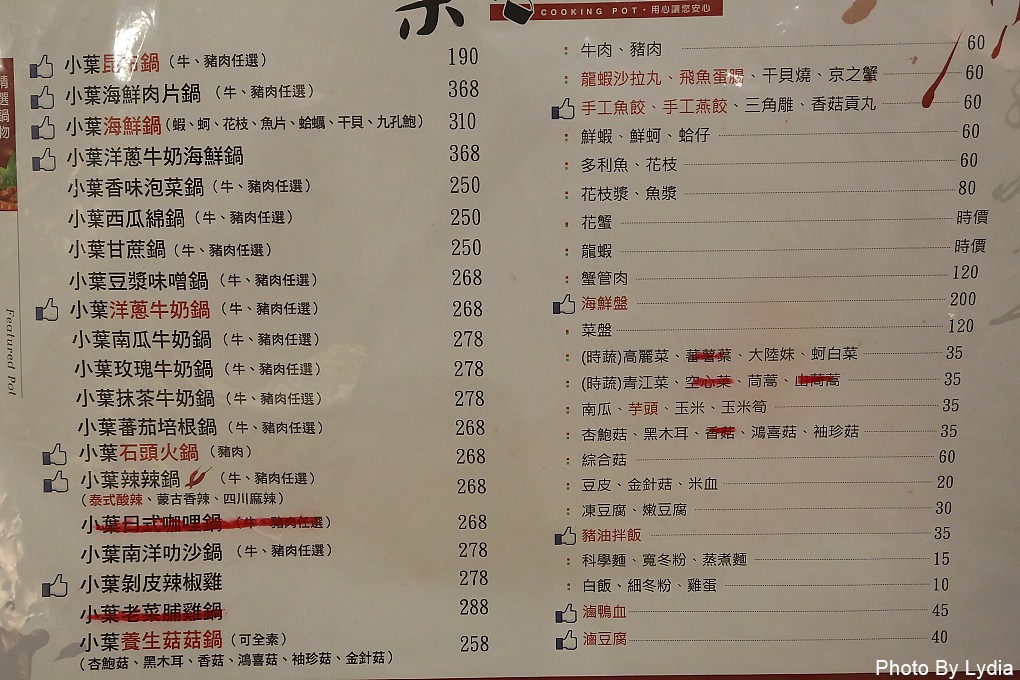 COOKING POT・用心讓您安心
精選鍋物
Featured Pot
小葉昆布鍋（牛、豬肉任選） 190
小葉海鮮肉片鍋（牛、豬肉任選） 368
小葉海鮮鍋（蝦、蚵、花枝、魚片、蛤蠣、干貝、九孔鮑） 310
小葉洋蔥牛奶海鮮鍋 368
小葉香味泡菜鍋（牛、豬肉任選） 250
小葉西瓜綿鍋（牛、豬肉任選） 250
小葉甘蔗鍋（牛、豬肉任選） 250
小葉豆漿味噌鍋（牛、豬肉任選） 268
小葉洋蔥牛奶鍋（牛、豬肉任選） 268
小葉南瓜牛奶鍋（牛、豬肉任選） 278
小葉玫瑰牛奶鍋（牛、豬肉任選） 278
小葉抹茶牛奶鍋（牛、豬肉任選） 278
小葉蕃茄培根鍋（牛、豬肉任選） 268
小葉石頭火鍋（豬肉） 268
小葉辣辣鍋（牛、豬肉任選） 268
（泰式酸辣、蒙古香辣、四川麻辣）
小葉日式咖哩鍋（牛、豬肉任選） 268
小葉南洋叻沙鍋（牛、豬肉任選） 278
小葉剝皮辣椒雞 278
小葉老菜脯雞鍋 288
小葉養生菇菇鍋（可全素） 258
（杏鮑菇、黑木耳、香菇、鴻喜菇、袖珍菇、金針菇）
牛肉、豬肉 60
龍蝦沙拉丸、飛魚蛋腸、干貝燒、京之蟹 60
手工魚餃、手工燕餃、三角雕、香菇貢丸 60
鮮蝦、鮮蚵、蛤仔 60
多利魚、花枝 60
花枝漿、魚漿 80
花蟹 時價
龍蝦 時價
蟹管肉 120
海鮮盤 200
菜盤 120
(時蔬)高麗菜、蕃薯葉、大陸妹、蚵白菜 35
(時蔬)青江菜、空心菜、茼蒿、山茼蒿 35
南瓜、芋頭、玉米、玉米筍 35
杏鮑菇、黑木耳、香菇、鴻喜菇、袖珍菇 35
綜合菇 60
豆皮、金針菇、米血 20
凍豆腐、嫩豆腐 30
豬油拌飯 35
科學麵、寬冬粉、蒸煮麵 15
白飯、細冬粉、雞蛋 10
滷鴨血 45
滷豆腐 40
Photo By Lydia